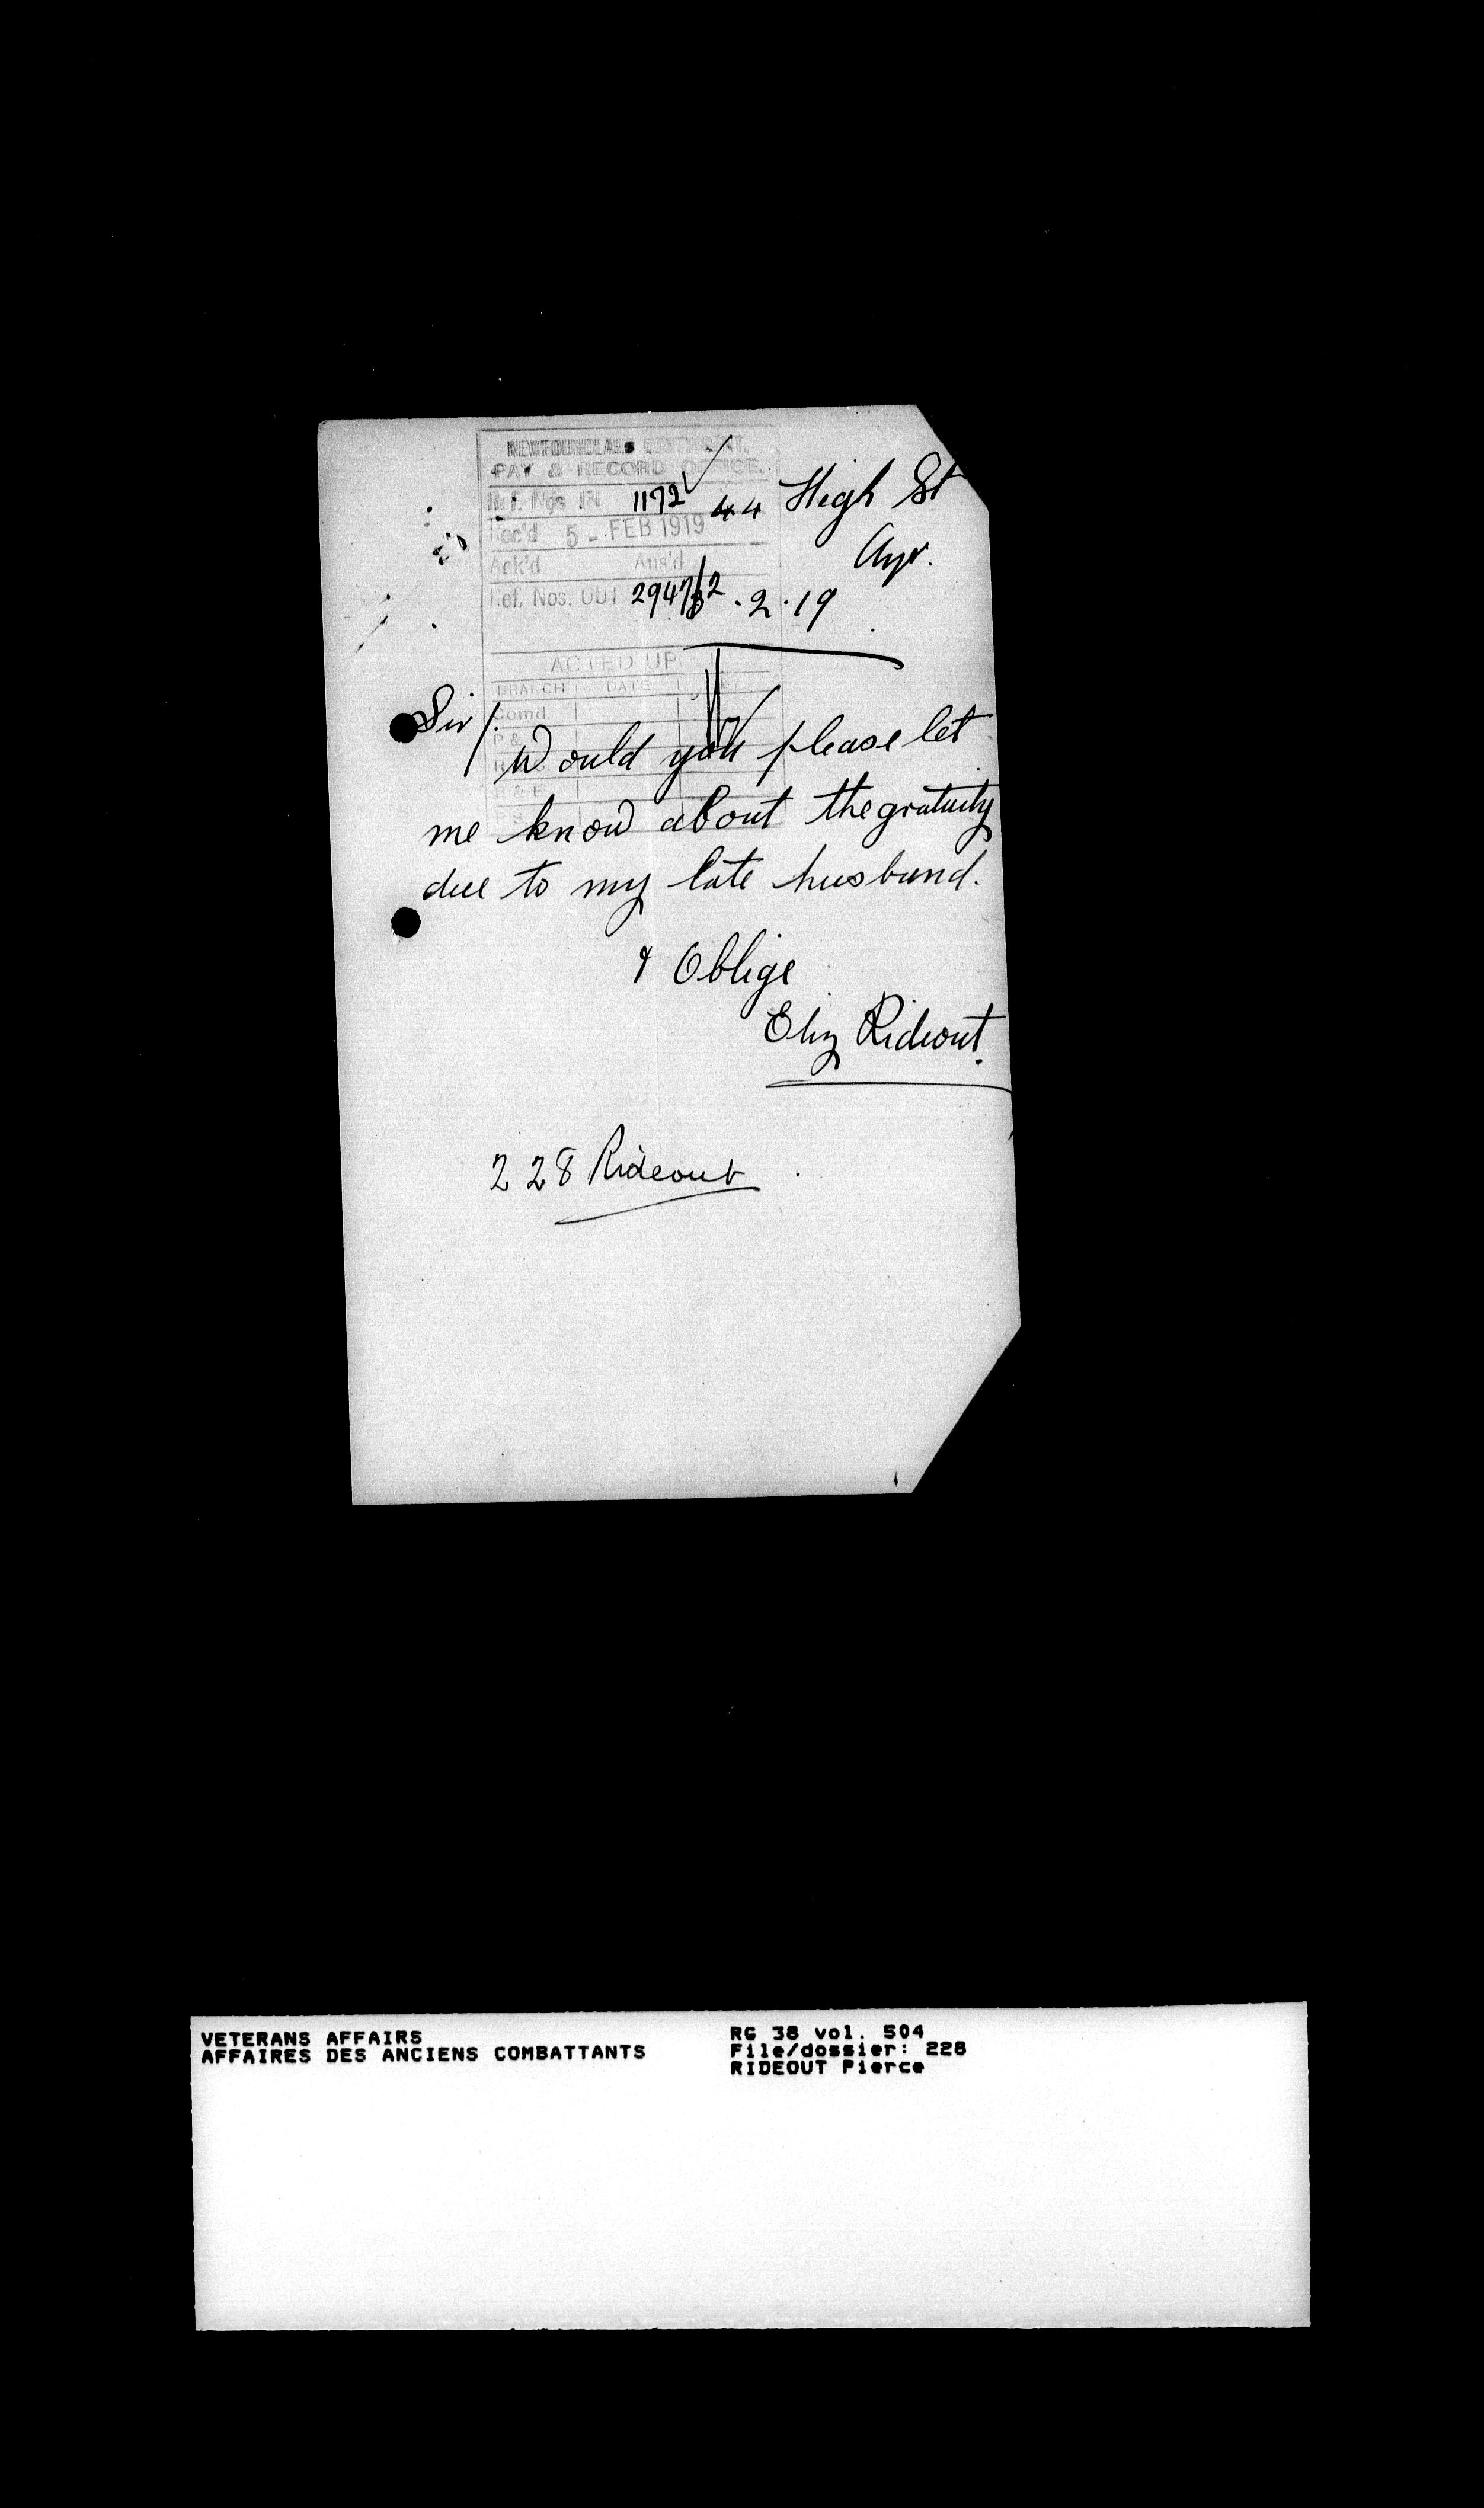 NEWFOUNDLAND CONTINGENT.
PAY & RECORD OFFICE.
Ref. Nos. IN 1172
44 High St
Rec'd 5 - FEB 1919
Ayr.
Ack'd Ans'd
Ref. Nos. OUT 2947/
2.2.19
ACTED UP
BRANCH DATE
Comd.
Sir/.
P &
Would you please let
R & E
me know about the gratuity
due to my late husband.
& Oblige
Eliz Rideout.
228 Rideout
VETERANS AFFAIRS
AFFAIRES DES ANCIENS COMBATTANTS
RG 38 vol. 504
File/dossier: 228
RIDEOUT Pierce